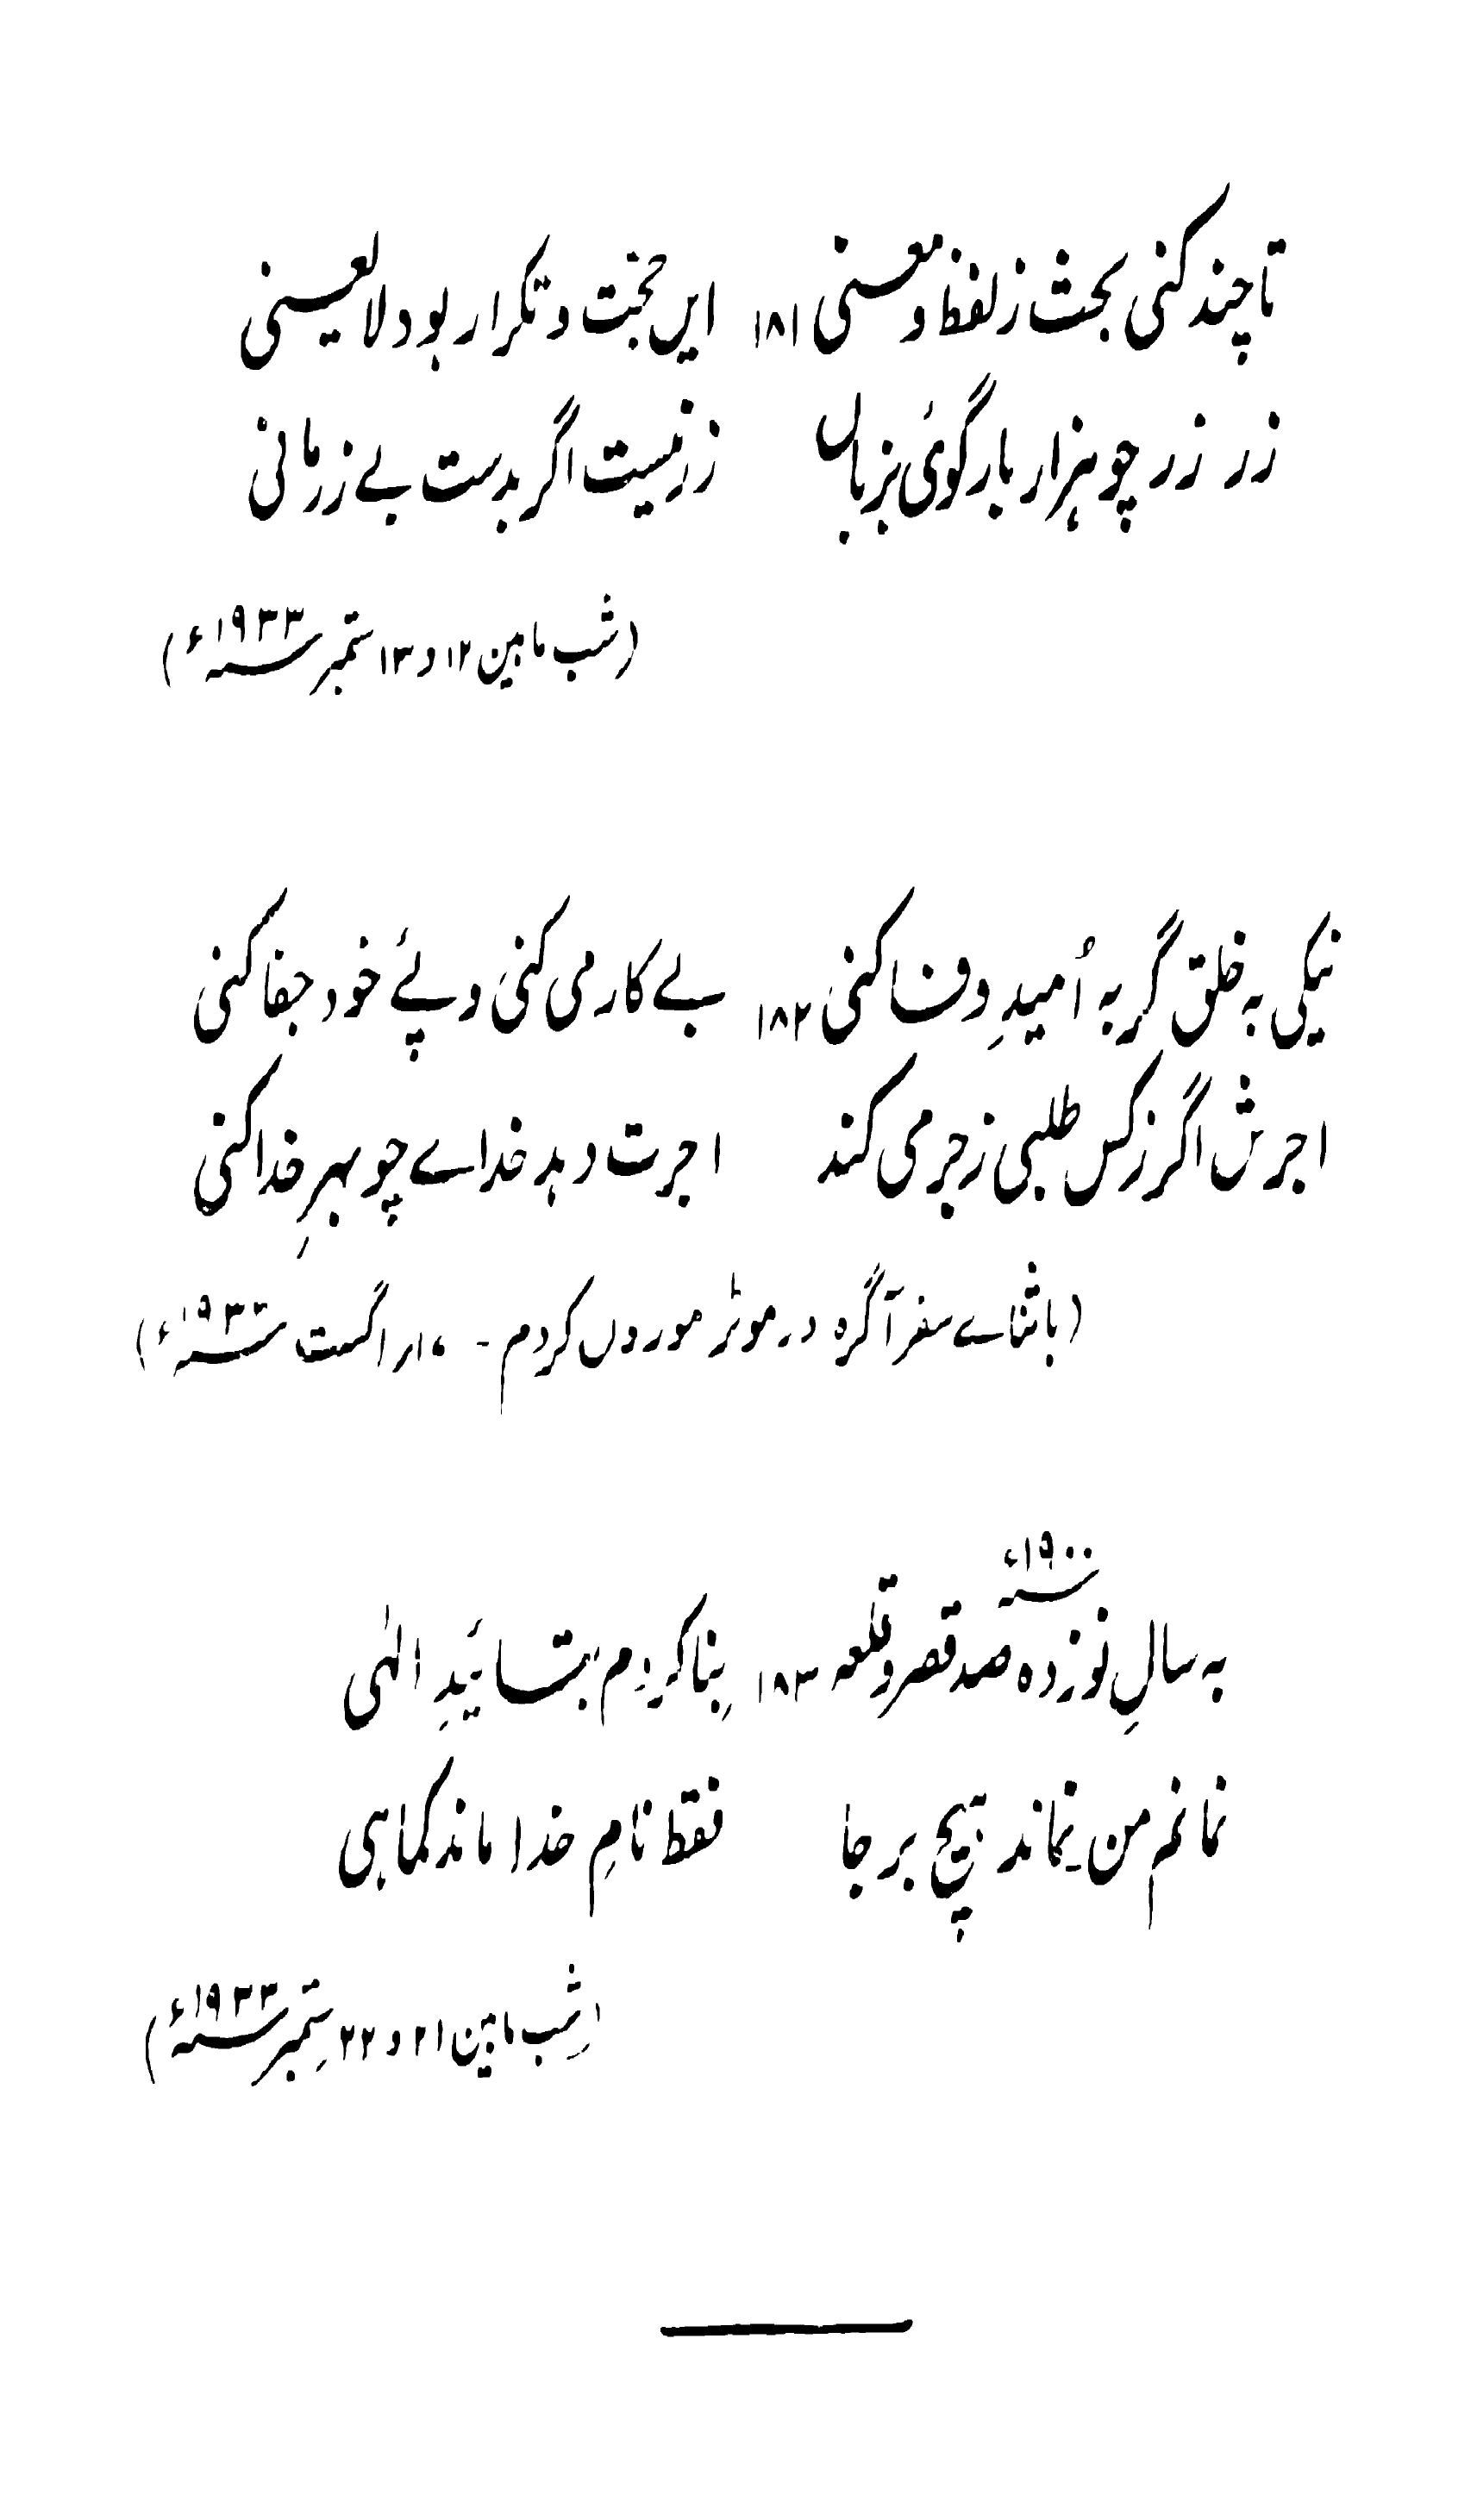 تا چند کنی بحث ز لفظ و معنی ۱۸۱ ایں حجت و تکرار بود لا یعنی
زر زر چو ہزار بار گوئی بزباں زر نیست اگر بدست بے زر مانی
(شب مابین ۱۲ و ۱۳ ستمبر سنہ ۱۹۳۳ء)
نیکی بہ خلق گر بہ اُمیدِ وفا کنی ۱۸۲ بے کار می کنی و پئے خود جفا کنی
اجرش اگر ز کس طلبی زجر می کند اجرت دہد خداے چو بہرِ خدا کنی
(باثناے سفر آگرہ در موٹر موزوں کردم - ۱۰ر اگست سنہ ۱۹۳۳ء)
سنہ ۱۹۰۰ء
بہ سالِ نوزدہ صد قصر و قلعہ ۱۸۳ بِنا کردم بتائیدِ الٰہی
نمانم من نماند ہیچ بر جا فقط نامِ خدا ماند کماہی
(شب مابین ۲۱ و ۲۲ ستمبر سنہ ۱۹۳۳ء)